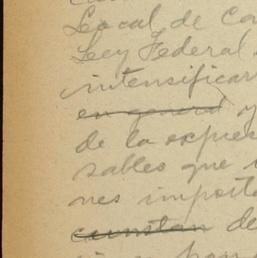 Local de Co
Ley Federal
intensificar
en general y
de la expres
sables que
nes importa
cunstan de